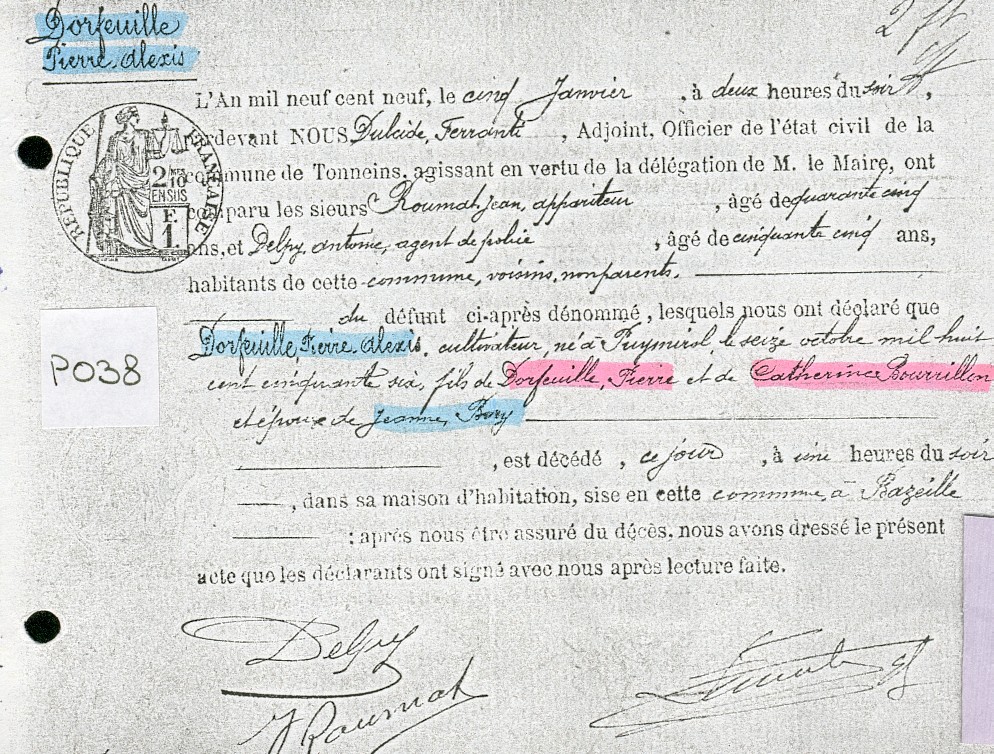 Dorfeuille
Pierre Alexis
2 ft
RÉPUBLIQUE FRANÇAISE
2/10
EN SUS
F.
1
L'An mil neuf cent neuf, le cinq Janvier, à deux heures du soir,
ardevant NOUS Dulcide, Ferrante, Adjoint, Officier de l'état civil de la
commune de Tonneins, agissant en vertu de la délégation de M. le Maire, ont
comparu les sieurs Roumat, Jean, appariteur, âgé de quarante cinq
ans, et Delpy, antoine, agent de police, âgé de cinquante cinq ans,
habitants de cette commune, voisins, non parents.
du défunt ci-après dénommé, lesquels nous ont déclaré que
Dorfeuille, Pierre Alexis, cultivateur, né à Puymirol, le seize octobre mil huit
cent cinquante six, fils de Dorfeuille, Pierre et de Catherine Bourrillon
et époux de Jeanne,
, est décédé, ce jour, à une heures du soir
, dans sa maison d'habitation, sise en cette commune, à Bazeille
; après nous être assuré du décès, nous avons dressé le présent
acte que les déclarants ont signé avec nous après lecture faite.
PO38
Delpy
J Roumat